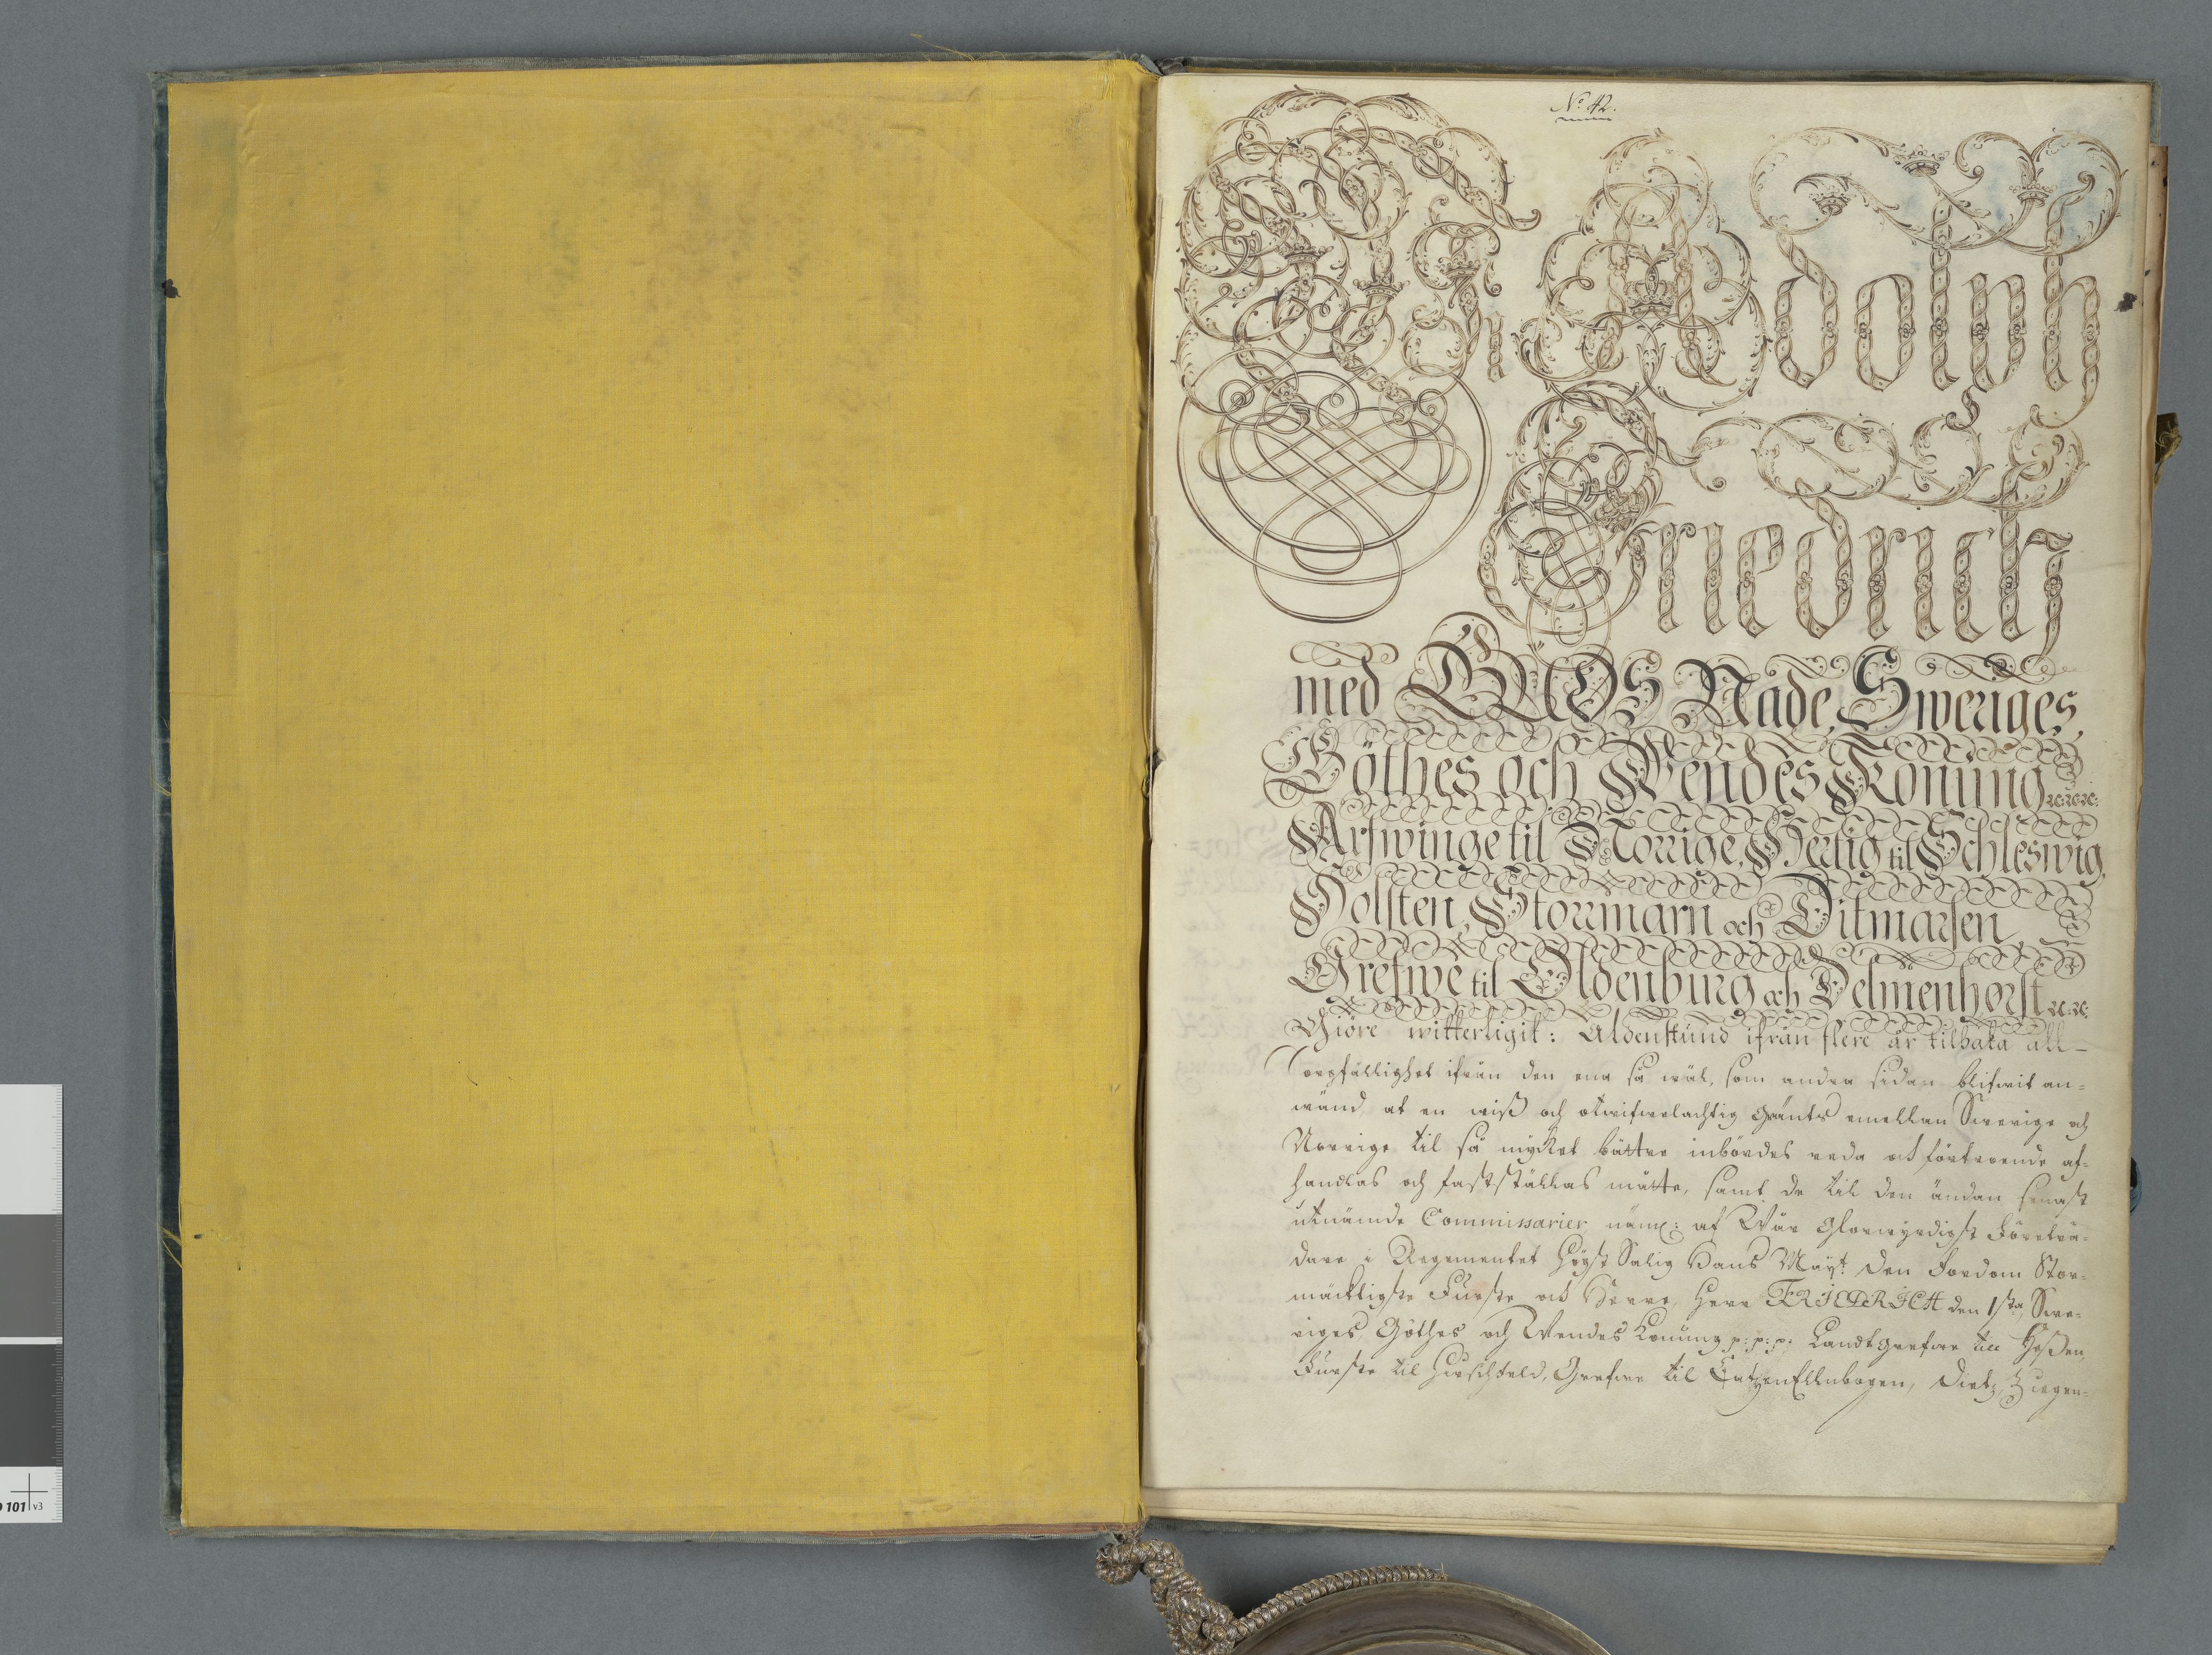 No 42.
Wi Adolph
Friedrich
med GUDS Nåde, Sweriges,
Göthes och Wendes Konung ꝛc:ꝛc:ꝛc:
Arfwinge til Norrige, Hertig til Schleswig,
Holsten, Stormarn och Ditmarsen,
Grefwe til Oldenburg och Delmenhorst ꝛc:ꝛc:
Giöre witterligit: Aldenstund ifrån flere år tilbaka all-
Sorgfällighet ifrån den ena så wäl, som andra sidan blifwit an-
wänd at en wiß och otwifwelachtig Gränts emellan Swerige och
Norrige til så mycket bättre inbördes reda och förtroende af-
handlas och fastställas måtte, samt de til den ändan senast
utnämde Commissarier näml: af Wår Glorwyrdigst Företrä-
dare i Regementet Höyst Salig Hans Mayt: den Fordom Stor-
mäktigste Furste och Herre, Herr FRIEDRICH den 1sta, Swe-
riges, Göthes och Wendes Konung p:p:p: Landtgrefwe till Heßen,
Furste til Hirschfeld, Grefwe til CatzenEllnbogen, Dietz, Ziegen-
101 v3